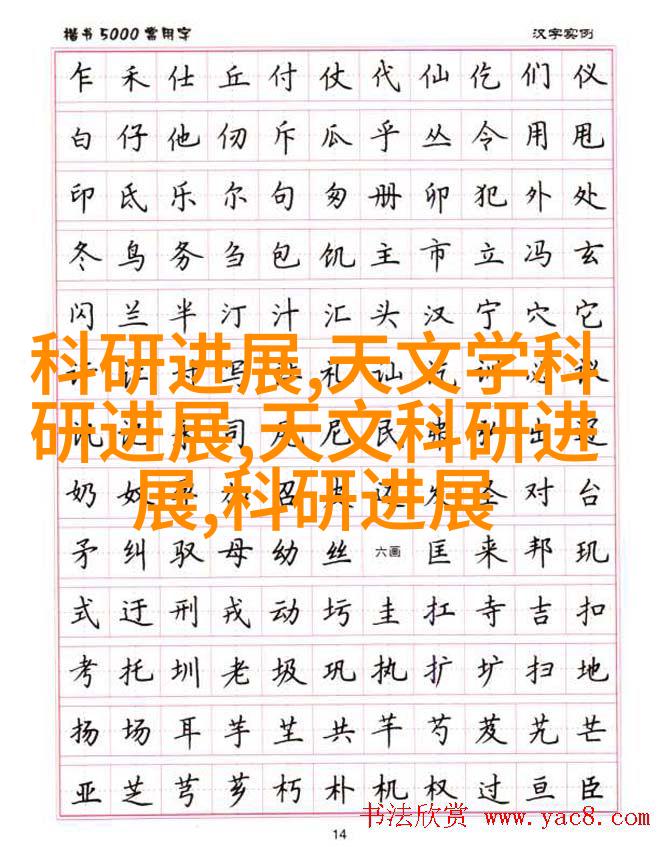 楷书5000常用字 汉字实例
乍 禾 仕 丘 付 仗 代 仙 仡 们 仪
白 仔 他 仞 斥 瓜 乎 丛 令 用 甩
印 氐 乐 尔 句 匆 册 卯 犯 外 处
冬 鸟 务 刍 包 饥 主 市 立 冯 玄
闪 兰 半 汀 汁 汇 头 汉 宁 穴 它
科研进展,天文学科
研进展,天文科研进
展,科研进展
写 礼 讪 必 议
司 尼 民 弗 出
奶 奴 召 对 台
矛 纠 驭 母 幼 丝 六画 匡 来 邦 玑
式 迂 刑 戎 动 圬 圭 扛 寺 吉 扣
考 托 圳 老 圾 巩 执 扩 圹 扫 地
扬 场 耳 芋 芏 共 芊 芍 芨 芄 芒
亚 芝 芎 芗 朽 朴 机 权 过 亘 臣
书法欣赏 www.yac8.com
14